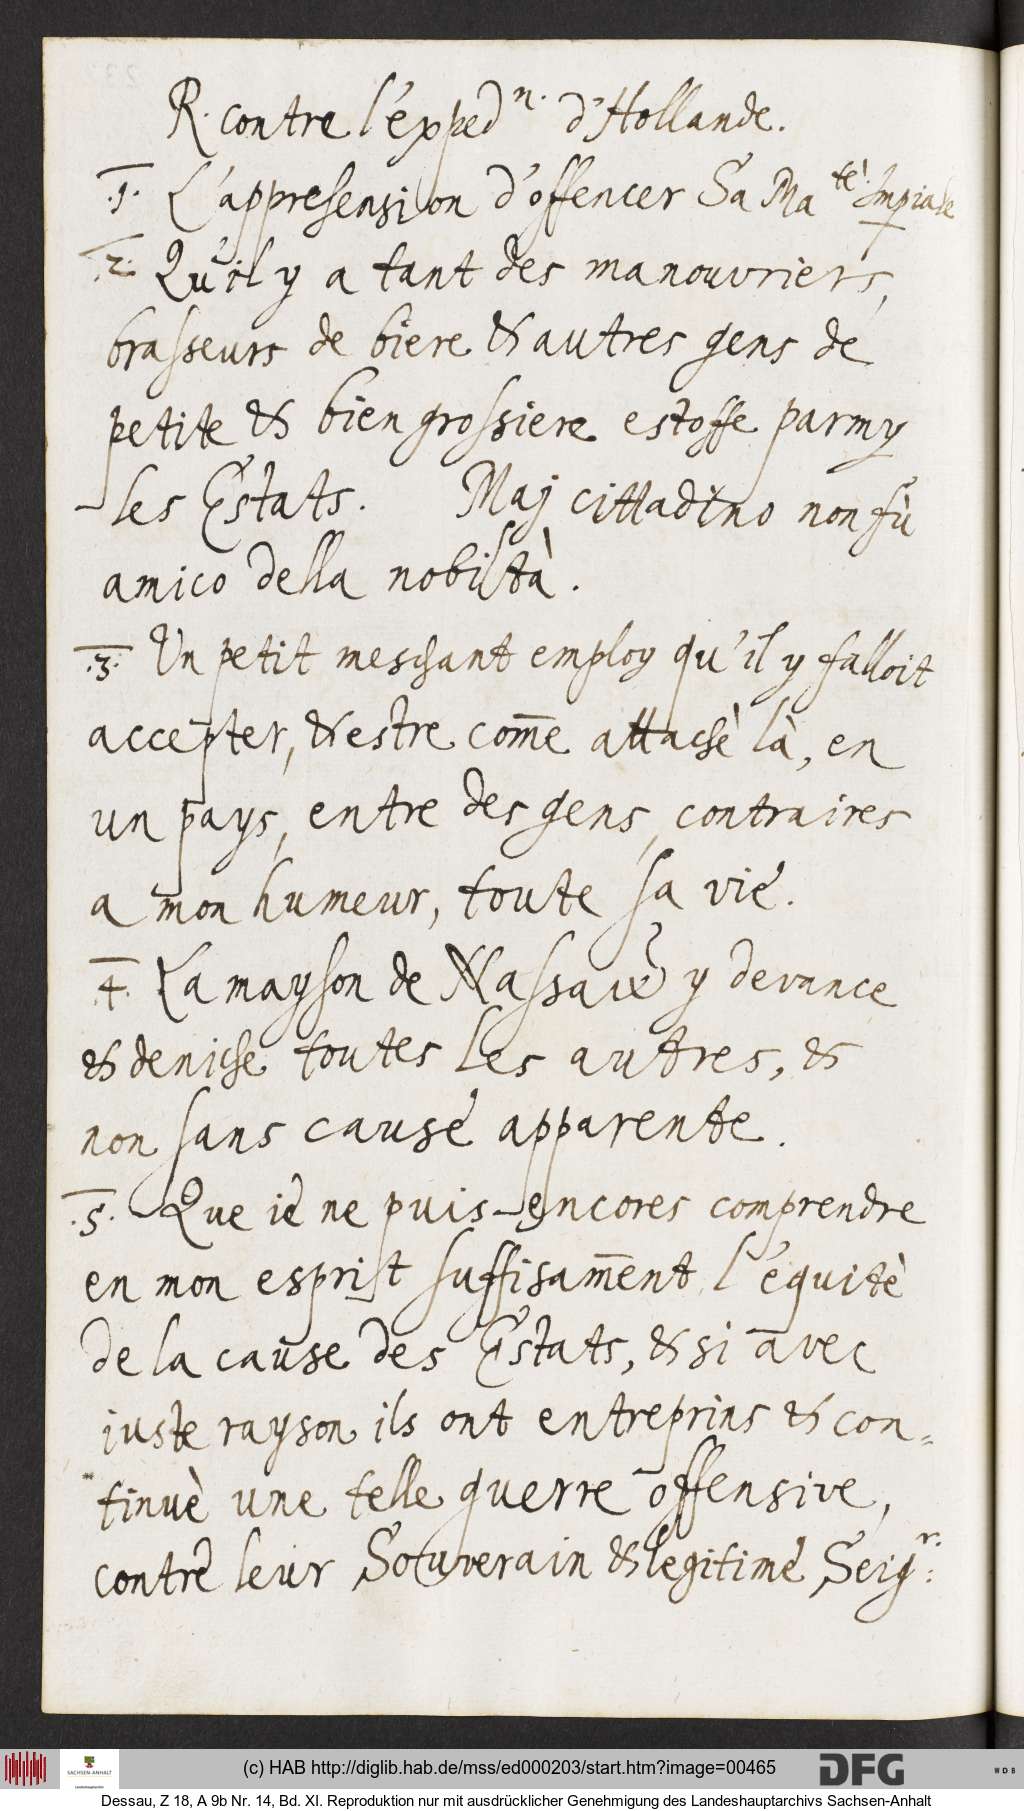 R. contre l'exped.n d'Hollande.
.1. L'apprehension d'offencer Sa Ma.tè Imp.iale
.2. Qu'il y a tant des manouvriers,
brasseurs de biere & autres gens de
petite & bien grossiere estoffe parmy
les Estats. Maj cittadino non fù
amico della nobiltà.
.3. Un petit meschant employ qu'il y falloit
accepter, & estre com̅e attachè là, en
un pays, entre des gens, contraires
a mon humeur, toute sa vie.
.4. La mayson de Nassaw y devance
& deniche toutes les autres, &
non sans cause apparente.
.5. Que ie ne puis encores comprendre
en mon esprit suffisam̅ent l'equitè
de la cause des Estats, & si avec
iuste rayson ils ont entreprins & con=
tinuè une telle guerre offensive,
contre leur Souverain & legitime Seig.r:
(c) HAB http://diglib.hab.de/mss/ed000203/start.htm?image=00465
SACHSEN-ANHALT
DFG
WDB
Dessau, Z 18, A 9b Nr. 14, Bd. XI. Reproduktion nur mit ausdrücklicher Genehmigung des Landeshauptarchivs Sachsen-Anhalt